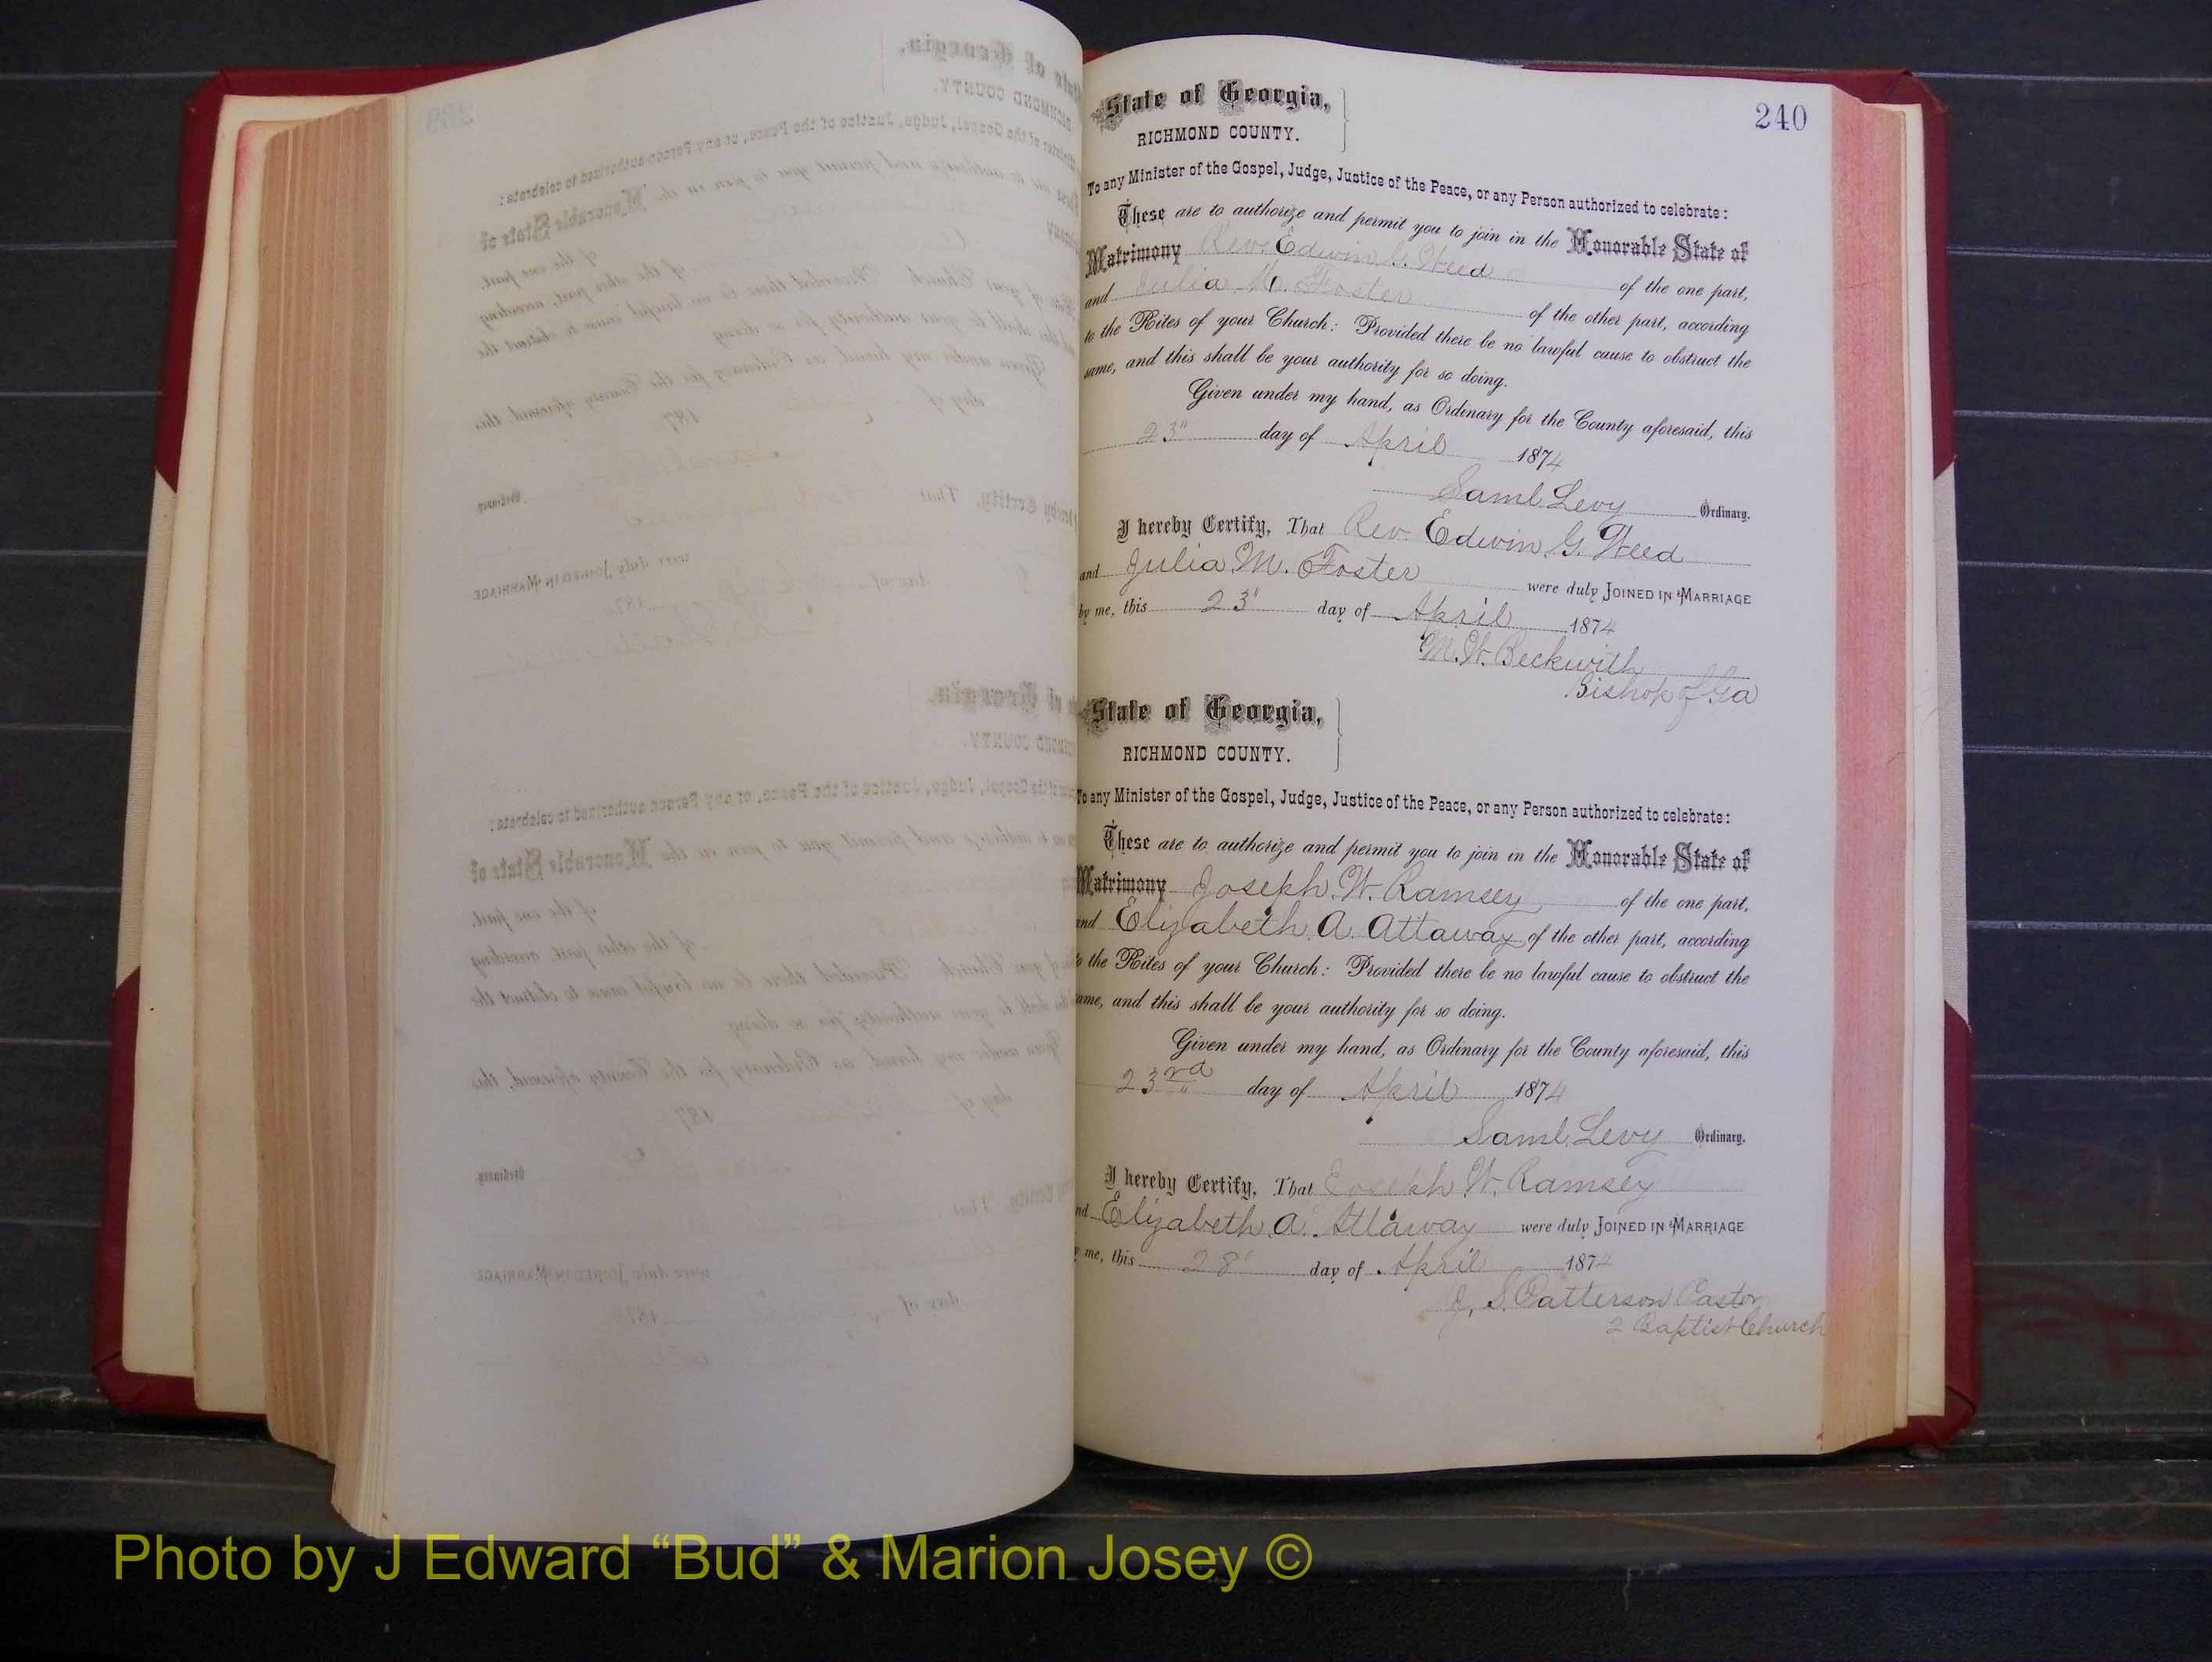 240
State of Georgia,
RICHMOND COUNTY.
To any Minister of the Gospel, Judge, Justice of the Peace, or any Person authorized to celebrate:
These are to authorize and permit you to join in the Honorable State of
Matrimony Rev. Edwin G. Weed of the one part,
and Julia M. Foster of the other part, according
to the Rites of your Church: Provided there be no lawful cause to obstruct the
same, and this shall be your authority for so doing.
Given under my hand, as Ordinary for the County aforesaid, this
23" day of April 1874
Saml. Levy Ordinary.
I hereby Certify, That Rev. Edwin G. Weed
and Julia M. Foster were duly JOINED IN MARRIAGE
by me, this 23" day of April 1874
M. W. Beckwith
Bishop of Ga
State of Georgia,
RICHMOND COUNTY.
To any Minister of the Gospel, Judge, Justice of the Peace, or any Person authorized to celebrate:
These are to authorize and permit you to join in the Honorable State of
Matrimony Joseph W. Ramsey of the one part,
and Elizabeth A. Attaway of the other part, according
to the Rites of your Church: Provided there be no lawful cause to obstruct the
same, and this shall be your authority for so doing.
Given under my hand, as Ordinary for the County aforesaid, this
23rd day of April 1874
Saml. Levy Ordinary.
I hereby Certify, That Joseph W. Ramsey
and Elizabeth A. Attaway were duly JOINED IN MARRIAGE
by me, this 28" day of April 1874
J. S. Patterson Pastor
2 Baptist Church
Photo by J Edward “Bud” & Marion Josey ©